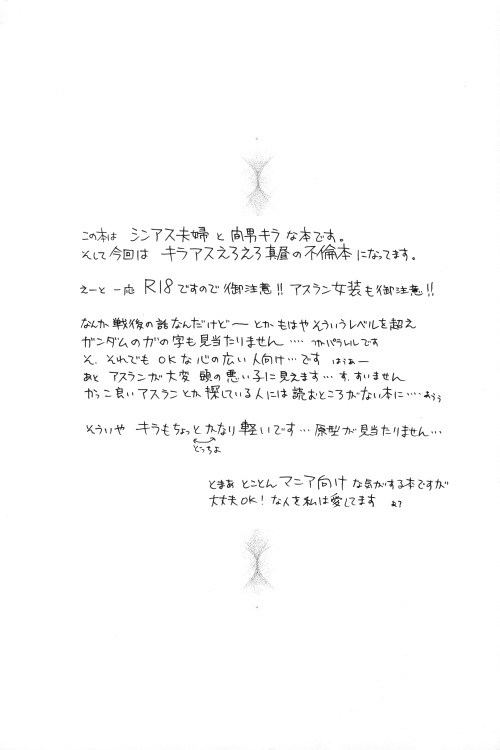 この本は シンアス夫婦 と 間男キラ な本です。
そして今回は キラアスえろえろ真昼の不倫本 になってます。
えーと 一応 R18ですので 御注意!! アスラン女装も御注意!!
なんか 戦後の話なんだけど〜 とか もはや そういうレベルを超え
ガンダムのガの字も見当たりません‥‥ つかパラレルです
そ、それでも OKな心の広い人向け…です はうあー
あと アスランが大変 頭の悪い子に見えます… す、すいません
かっこ良いアスランとか探している人には 読むところがない本に‥‥ おぅぅ
そういや キラもちょっとかなり軽いです… 原型が見当たりません…
どっちよ
とまあ とことん マニア向け な気がする本ですが
大丈夫OK! な人を私は愛してます